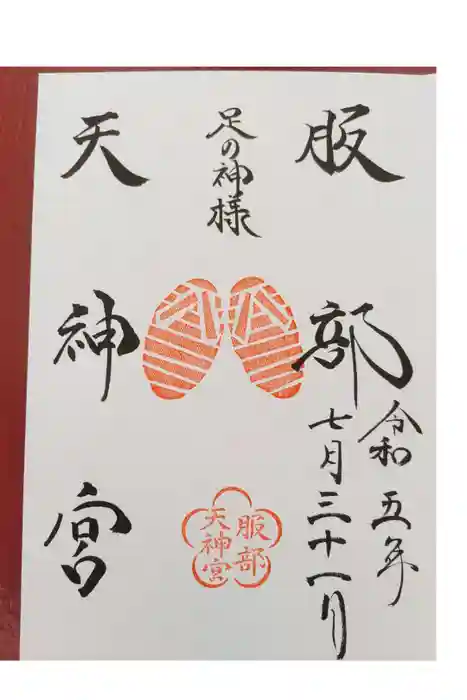 服部
令和五年
七月三十一日
足の神様
服部
天神宮
天神宮